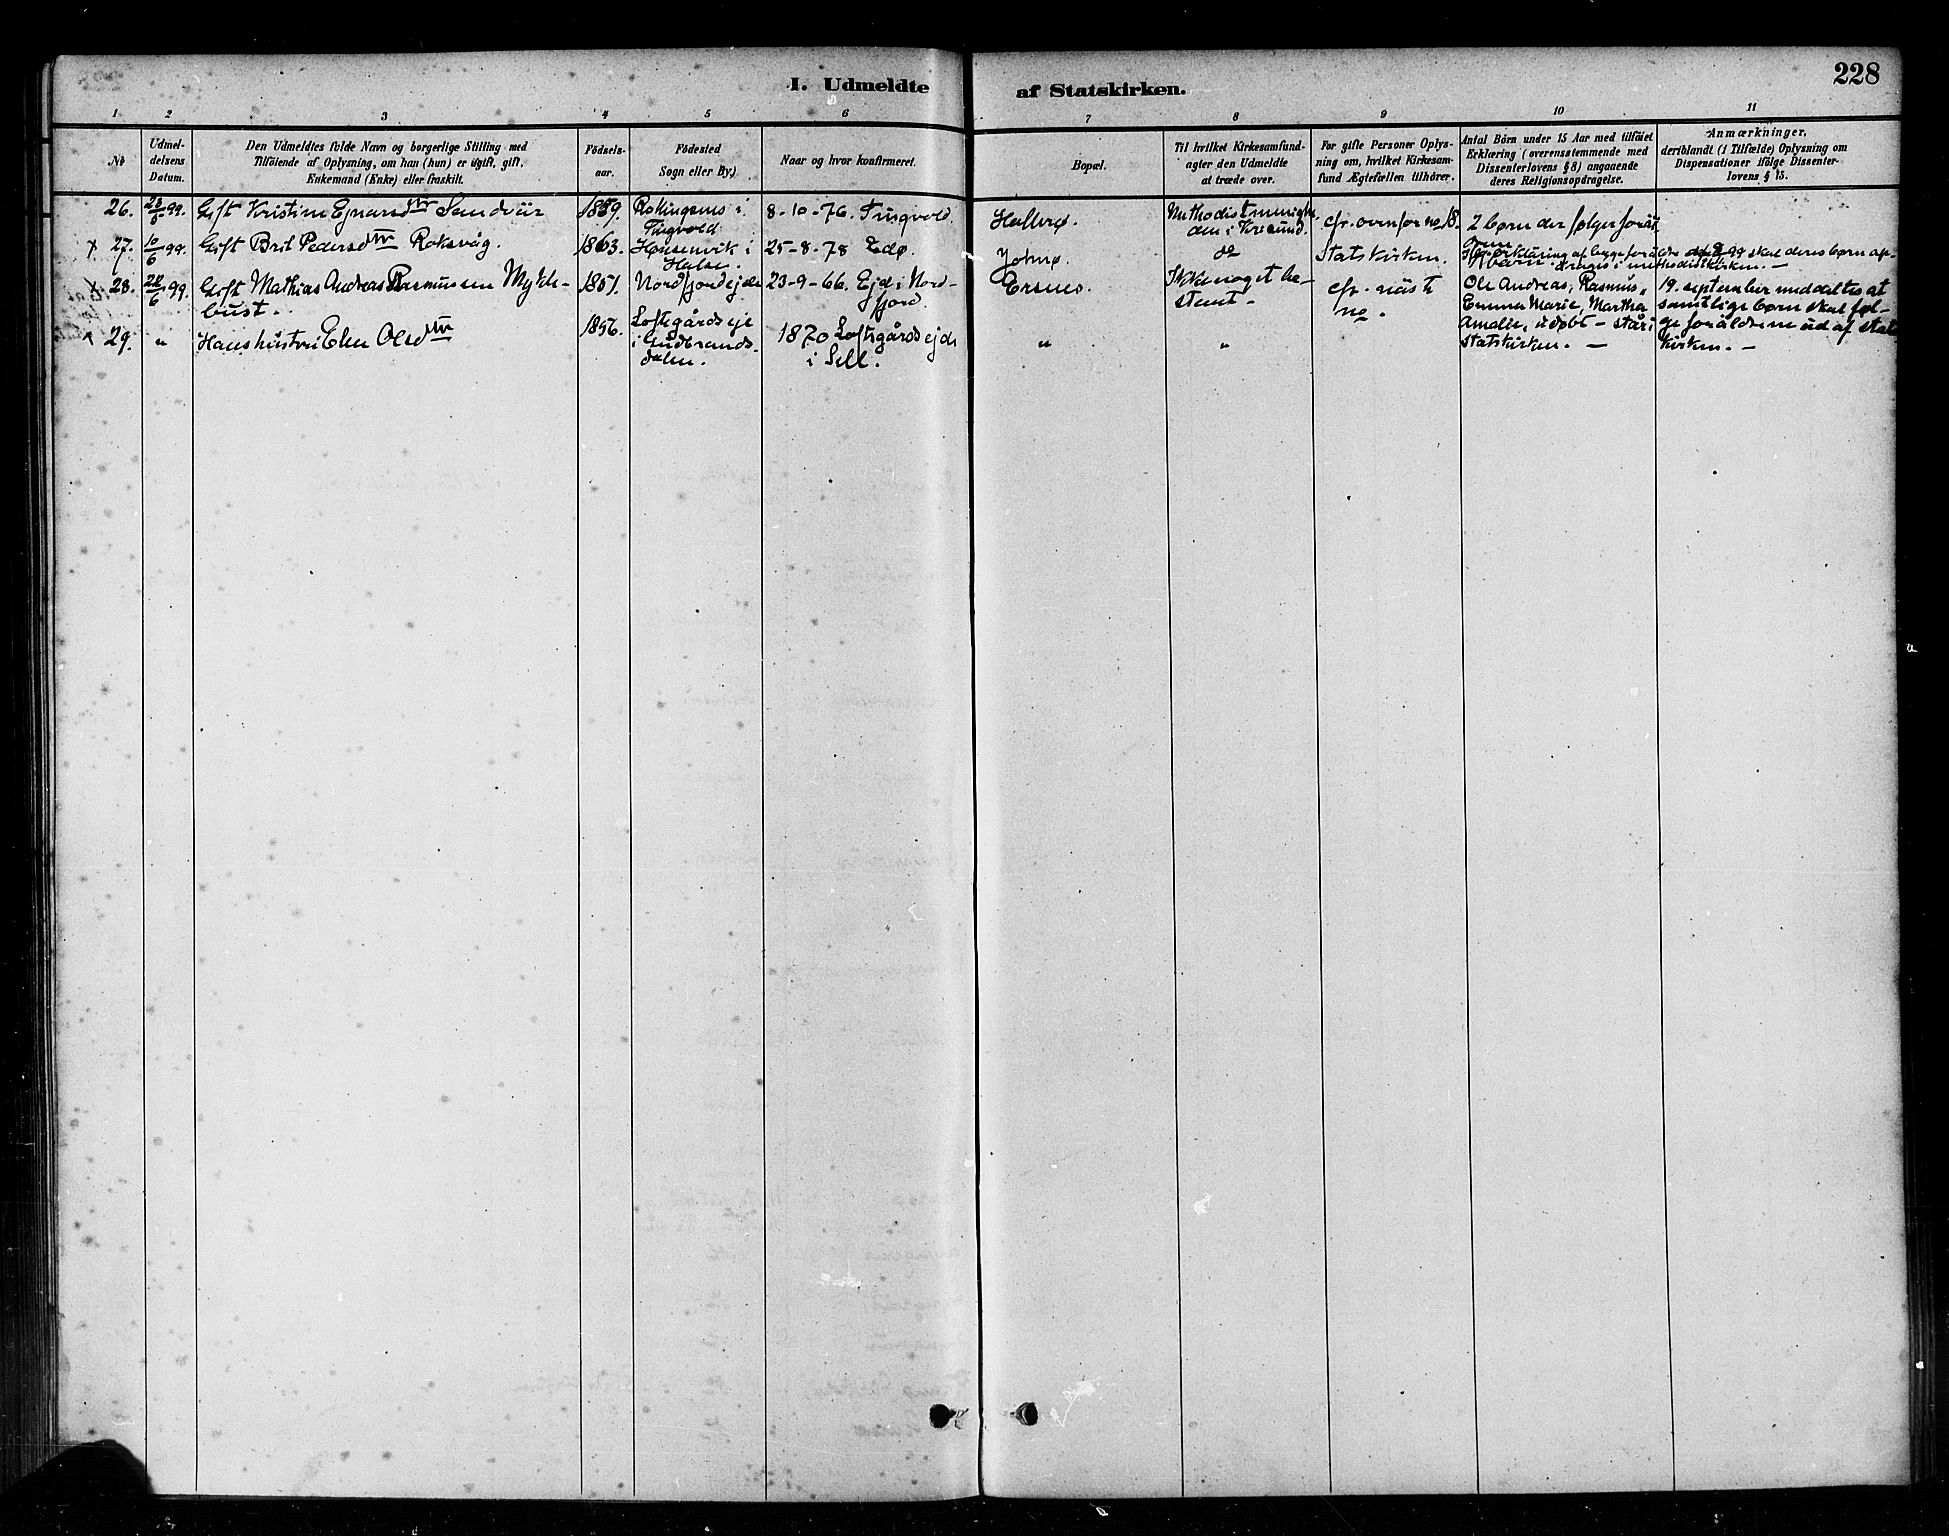 228
I. Udmeldte af Statskirken.
1 2 3 4 5 6 7 8 9 10 11
No
Udmel-
delsens
Datum.
Den Udmeldtes fulde Navn og borgerlige Stilling med
Tilföiende af Oplysning, om han (hun) er ugift, gift,
Enkemand (Enke) eller fraskilt.
Födsels-
aar.
Födested
Sogn eller By.)
Naar og hvor konfirmeret.
Bopæl.
Til hvilket Kirkesamfund-
agter den Udmeldte
at træde over.
For gifte Personer Oplys-
ning om, hvilket Kirkesam-
fund Ægtefællen tilhörer.
Antal Börn under 15 Aar med tilföiet
Erklæring (overensstemmende med
Dissenterlovens § 8) angaaende
deres Religionsopdragelse.
Anmærkninger,
deriblandt (i Tilfælde) Oplysning om
Dispensationer ifölge Dissenter-
lovens § 15.
26. 23/5 99. Gift Kristine Ejnarsdtr Sandvik 1859. i
Tingvold
8-10-76. Tingvold. Hallerø.
den i Krsund.
cfr. ovenfor no 18. 2 børn der følger foräl
drene
27. 10/6 99. Gift Brit Pedersdtr Roksvåg. 1863. Hensenvik i
Halse.
25-8-78 Edø. do Statskirken.
børn
skal deres børn op-
drages i methodistkirken. —
28. 22/6 99. Gift Mathias Andreas Rasmussen Mykle-
bust.
1851. Nordfjordejde 23-9-66 Ejd i Nord-
fjord.
Ersnes. Ikke noget be-
stemt -
cfr. näste
no.
Ole Andreas, Rasmus,
Emma Marie, Martha
Amalie, udøbt - står i
statskirken. —
19. september meddeltes at
samtlige børn skal føl-
ge foräldrene ud af stats
kirken. —
29. " Hans hustru Olsdtr 1856. Loftsgårdseje
i Gudbrands-
dalen.
1870 Loftsgårdsejde
i Sell.
" "